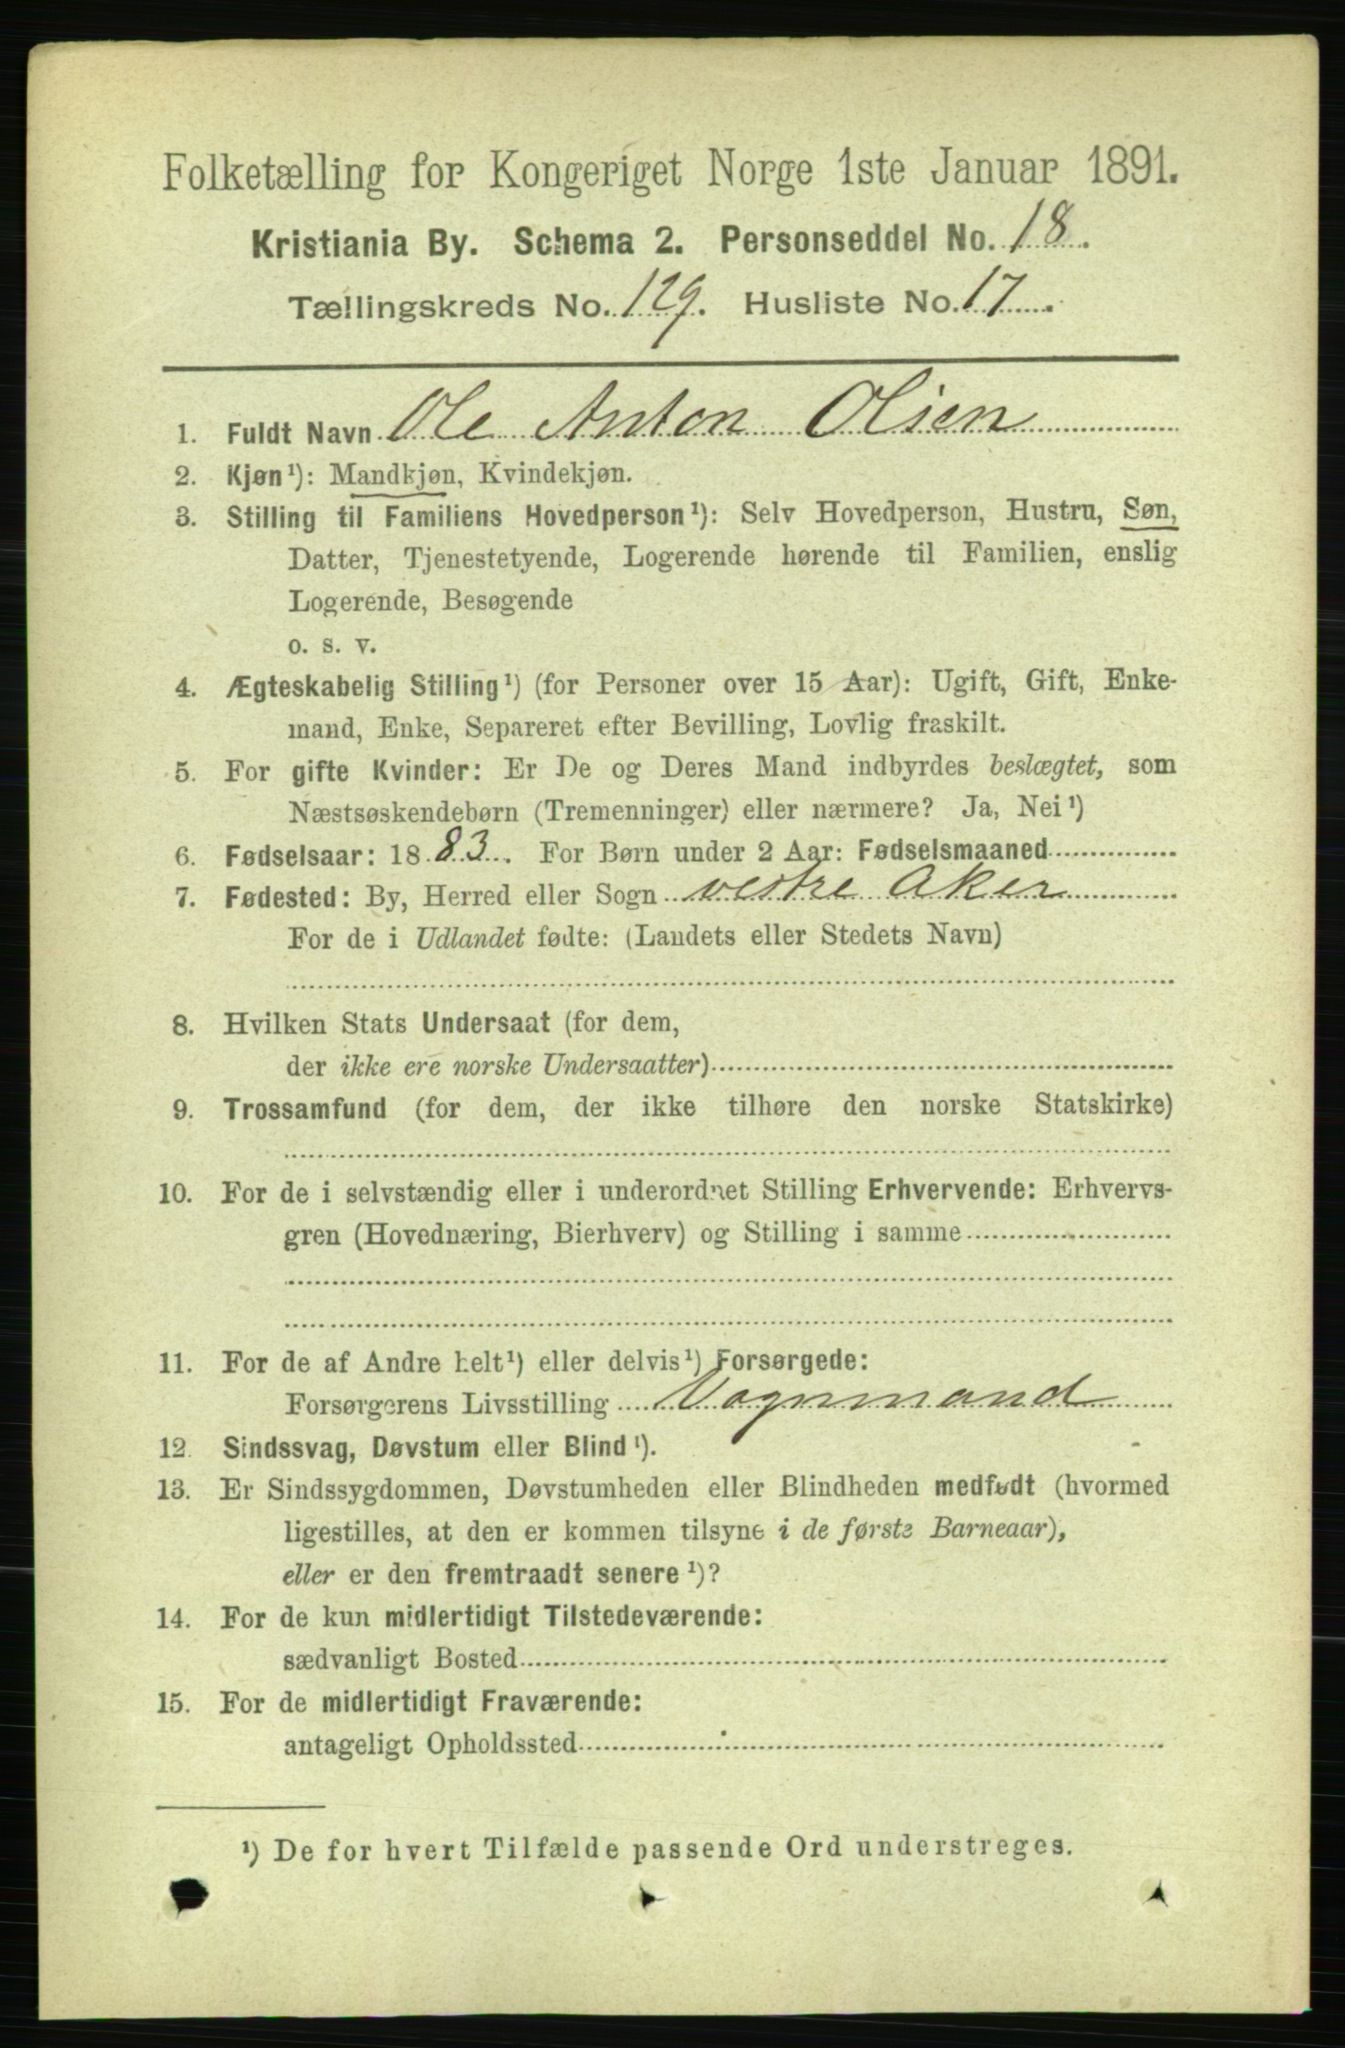 Folketælling for Kongeriget Norge 1ste Januar 1891.
Kristiania By. Schema 2. Personseddel No. 18.
Tællingskreds No. 129. Husliste No. 17.
1. Fuldt Navn Ole Anton Olsen
2. Kjøn¹): Mandkjøn, Kvindekjøn.
3. Stilling til Familiens Hovedperson¹): Selv Hovedperson, Hustru, Søn,
Datter, Tjenestetyende, Logerende hørende til Familien, enslig
Logerende, Besøgende
o. s. v.
4. Ægteskabelig Stilling¹) (for Personer over 15 Aar): Ugift, Gift, Enke-
mand, Enke, Separeret efter Bevilling, Lovlig fraskilt.
5. For gifte Kvinder: Er De og Deres Mand indbyrdes beslægtet, som
Næstsøskendebørn (Tremenninger) eller nærmere? Ja, Nei¹)
6. Fødselsaar: 1883. For Børn under 2 Aar: Fødselsmaaned
7. Fødested: By, Herred eller Sogn vestre Aker
For de i Udlandet fødte: (Landets eller Stedets Navn)
8. Hvilken Stats Undersaat (for dem,
der ikke ere norske Undersaatter)
9. Trossamfund (for dem, der ikke tilhøre den norske Statskirke)
10. For de i selvstændig eller i underordnet Stilling Erhvervende: Erhvervs-
gren (Hovednæring, Bierhverv) og Stilling i samme
11. For de af Andre helt¹) eller delvis¹) Forsørgede:
Forsørgerens Livsstilling Vognmand
12. Sindssvag, Døvstum eller Blind¹).
13. Er Sindssygdommen, Døvstumheden eller Blindheden medfødt (hvormed
ligestilles, at den er kommen tilsyne i de første Barneaar),
eller er den fremtraadt senere¹)?
14. For de kun midlertidigt Tilstedeværende:
sædvanligt Bosted
15. For de midlertidigt Fraværende:
antageligt Opholdssted
¹) De for hvert Tilfælde passende Ord understreges.